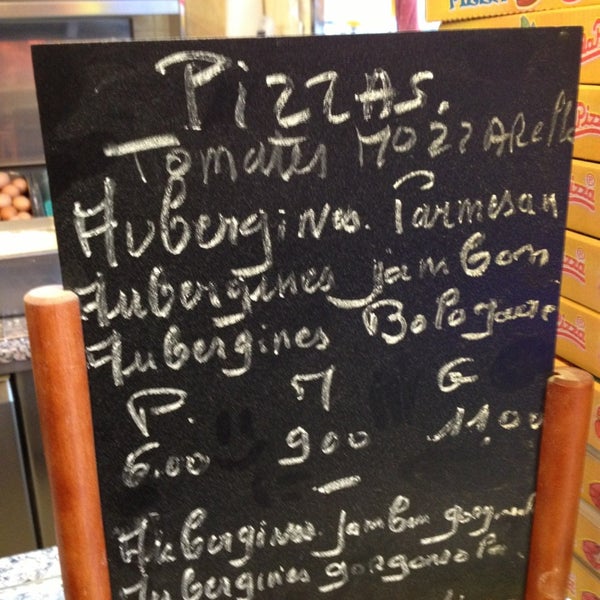 PizzAs.
Tomates MOzzARelle
Aubergines. Parmesan
Aubergines jambon
Aubergines Bolognaise
P. M G
6.00 900 11,00
Aubergines. jambon
Aubergines gorgonzola
Pizza
Pizza
Pizza
Pizza